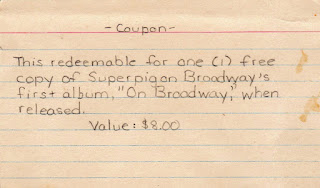 - Coupon -
This redeemable for one (1) free
copy of Superpig on Broadway's
first album, "On Broadway," when
released.
Value: $8.00